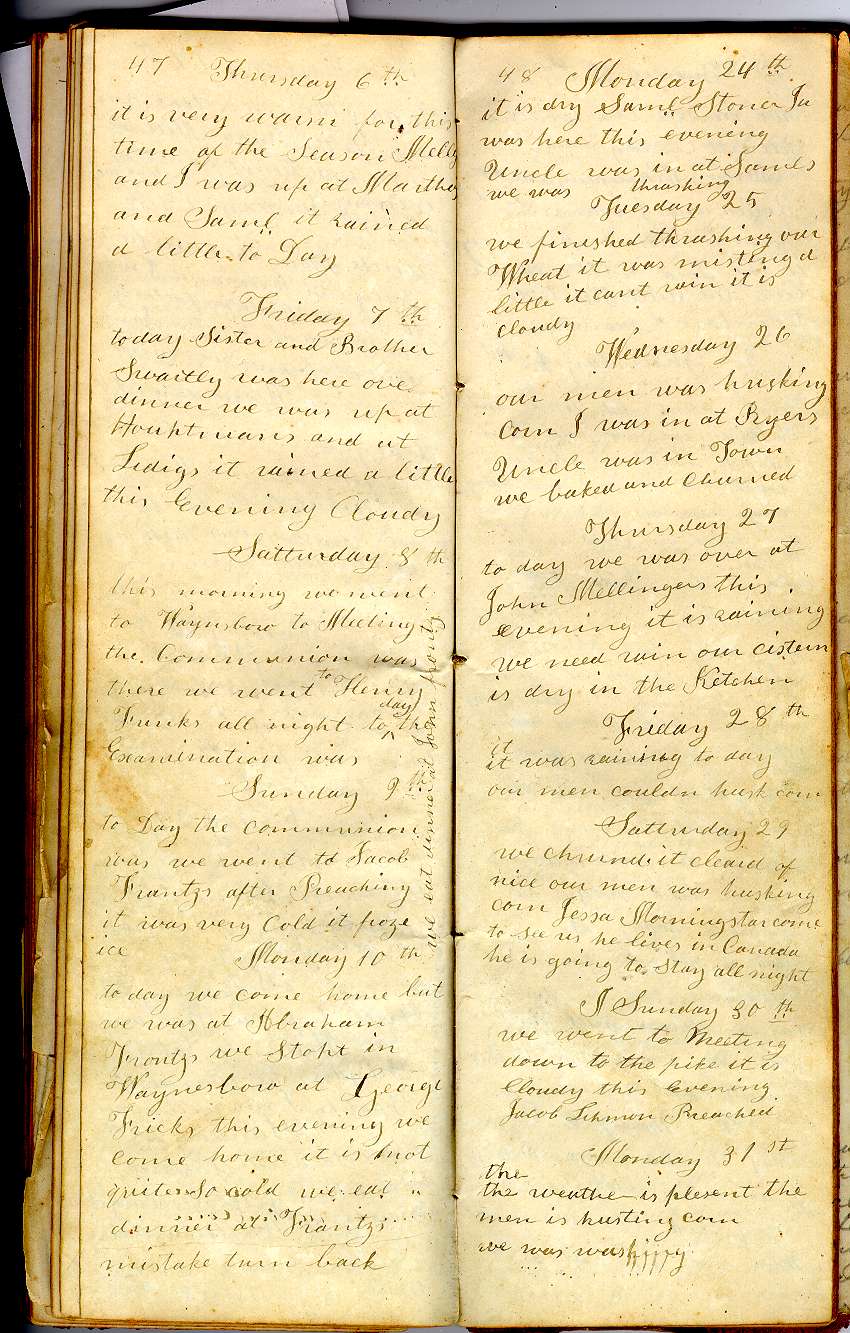 47 Thursday 6th
it is very warm for this
time of the Season Melly
and I was up at Marthas
and Saml it rained
a little to Day
Friday 7th
to day Sister and Brother
Swaitly was here ove
dinner we was up at
and at
Ledigs it rained a little
this Evening Cloudy
Satturday 8th
this morning we went
to Waynsboro to Meeting
the Communion was
there we went to Henry
Funks all night to day the
Examination was
Sunday 9th
to Day the communion
was we went to Jacob
Frantzs after Preaching
it was very Cold it froze
ice
we eat dinner at John frantz
Monday 10th
to day we come home but
we was at Abraham
Frontzs we Stopt in
Waynesboro at George
Fricks this evening we
come home it is not
quite so cold we eat
dinner at Frantzs
mistake turn back
48 Monday 24th
it is dry Saml Stoner Ju
was here this evening
Uncle was in at Samls
we was thrashing
Tuesday 25
we finished thrashing our
Wheat it was misting a
little it cant rain it is
cloudy
Wednesday 26
our men was husking
corn I was in at Ryers
Uncle was in Town
we baked and churned
Thursday 27
to day we was over at
John Mellingers this
evening it is raining
we need rain our cistern
is dry in the Kitchen
Friday 28th
it
it was raining to day
our men couldn husk corn
Satturday 29
we chrund it cleard of
nice our men was husking
corn Jessa Morningstar come
to see us he lives in Canada
he is going to Stay all night
I Sunday 30th
we went to Meeting
down to the pike it is
Cloudy this evening
Jacob Lehmon Preached
Monday 31st
the
the weathe is plesent the
men is husting corn
we was washing